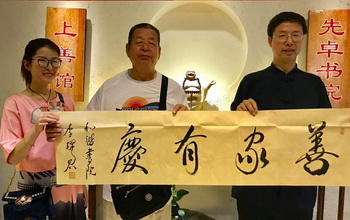 上善馆
先卓书院
善家有慶
和谐書院